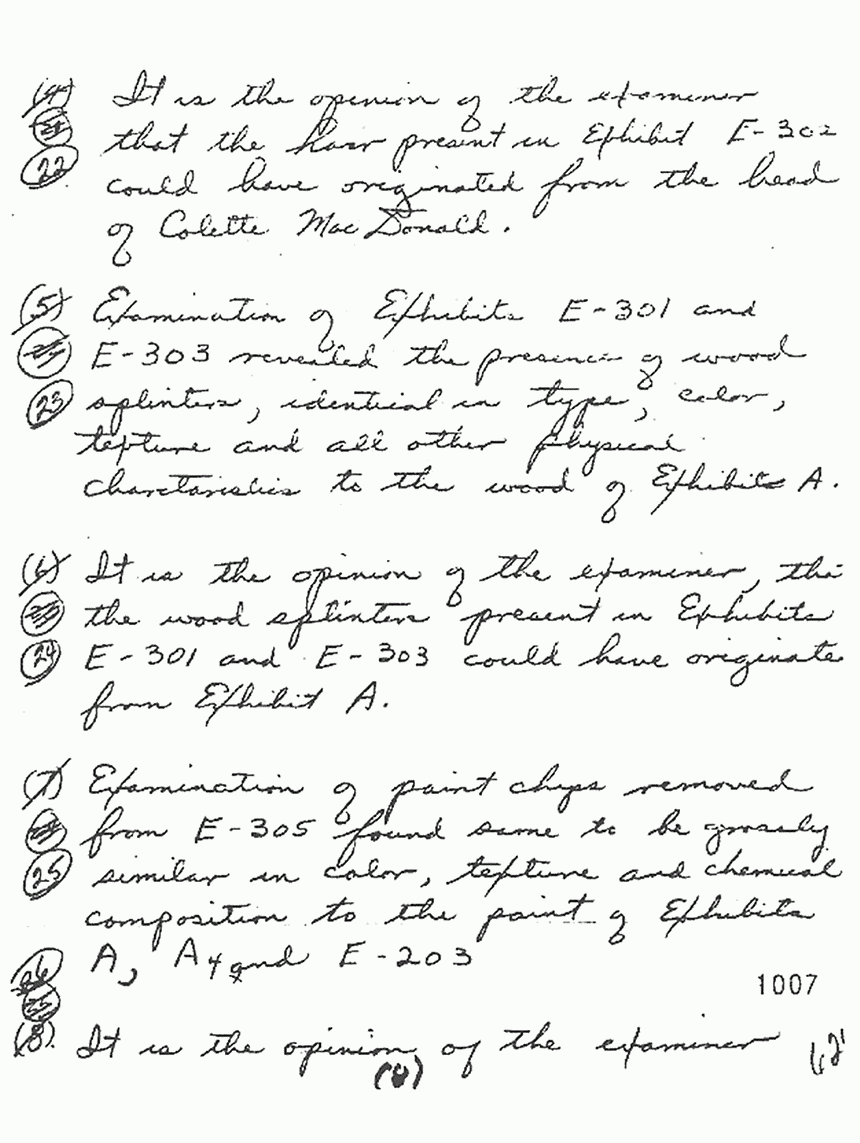 (4) It is the opinion of the examiner
that the hair present in Exhibit E-302
(22) could have originated from the head
of Colette MacDonald.
(5) Examination of Exhibits E-301 and
E-303 revealed the presence of wood
(23) splinters, identical in type, color,
texture and all other physical
charctaristics to the wood of Exhibit A.
(6) It is the opinion of the examiner, tha
the wood splinters present in Exhibits
(24) E-301 and E-303 could have originate
from Exhibit A.
(7) Examination of paint chips removed
from E-305 found same to be grossly
(25) similar in color, texture and chemical
composition to the paint of Exhibits
26 A, A4 and E-203
1007
(8). It is the opinion of the examiner